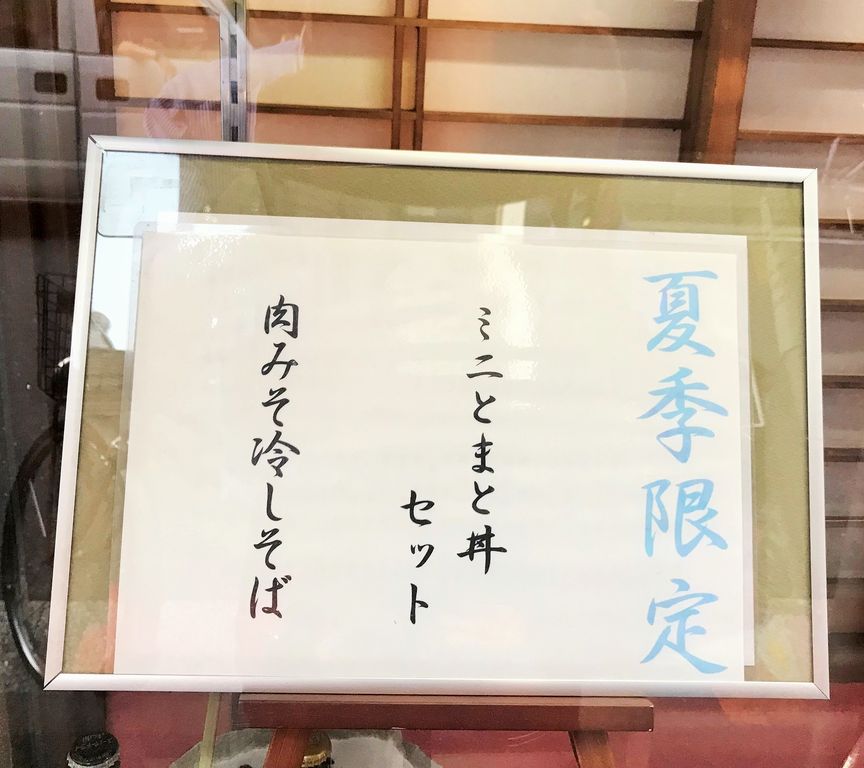 夏季限定
ミニとまと丼
セット
肉みそ冷しそば